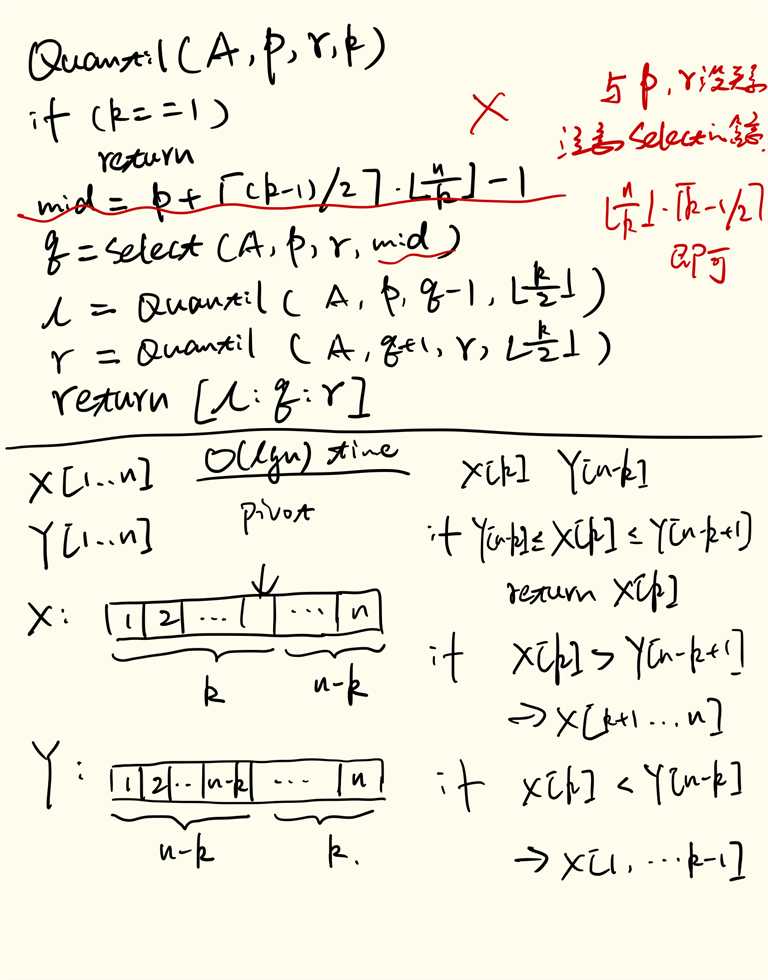 Quantil(A, p, r, k)
if (k==1)
return
mid = p + ⌈(k-1)/2⌉ · ⌊n/k⌋ - 1
q = Select (A, p, r, mid)
l = Quantil ( A, p, q-1, ⌊k/2⌋ )
r = Quantil ( A, q+1, r, ⌊k/2⌋ )
return [l : q : r]
×
与 p, r 没关系
注意 Select in
⌊n/k⌋ · ⌈k-1/2⌉
即可
X[1..n]
Y[1..n]
O(lgn) time
pivot
X:
1 2 ... ... n
k n-k
Y:
1 2 .. n-k ... n
n-k k.
X[k] Y[n-k]
if Y[n-k] ≤ X[k] ≤ Y[n-k+1]
return X[k]
if X[k] > Y[n-k+1]
→ X[k+1 ... n]
if X[k] < Y[n-k]
→ X[1, ... k-1]